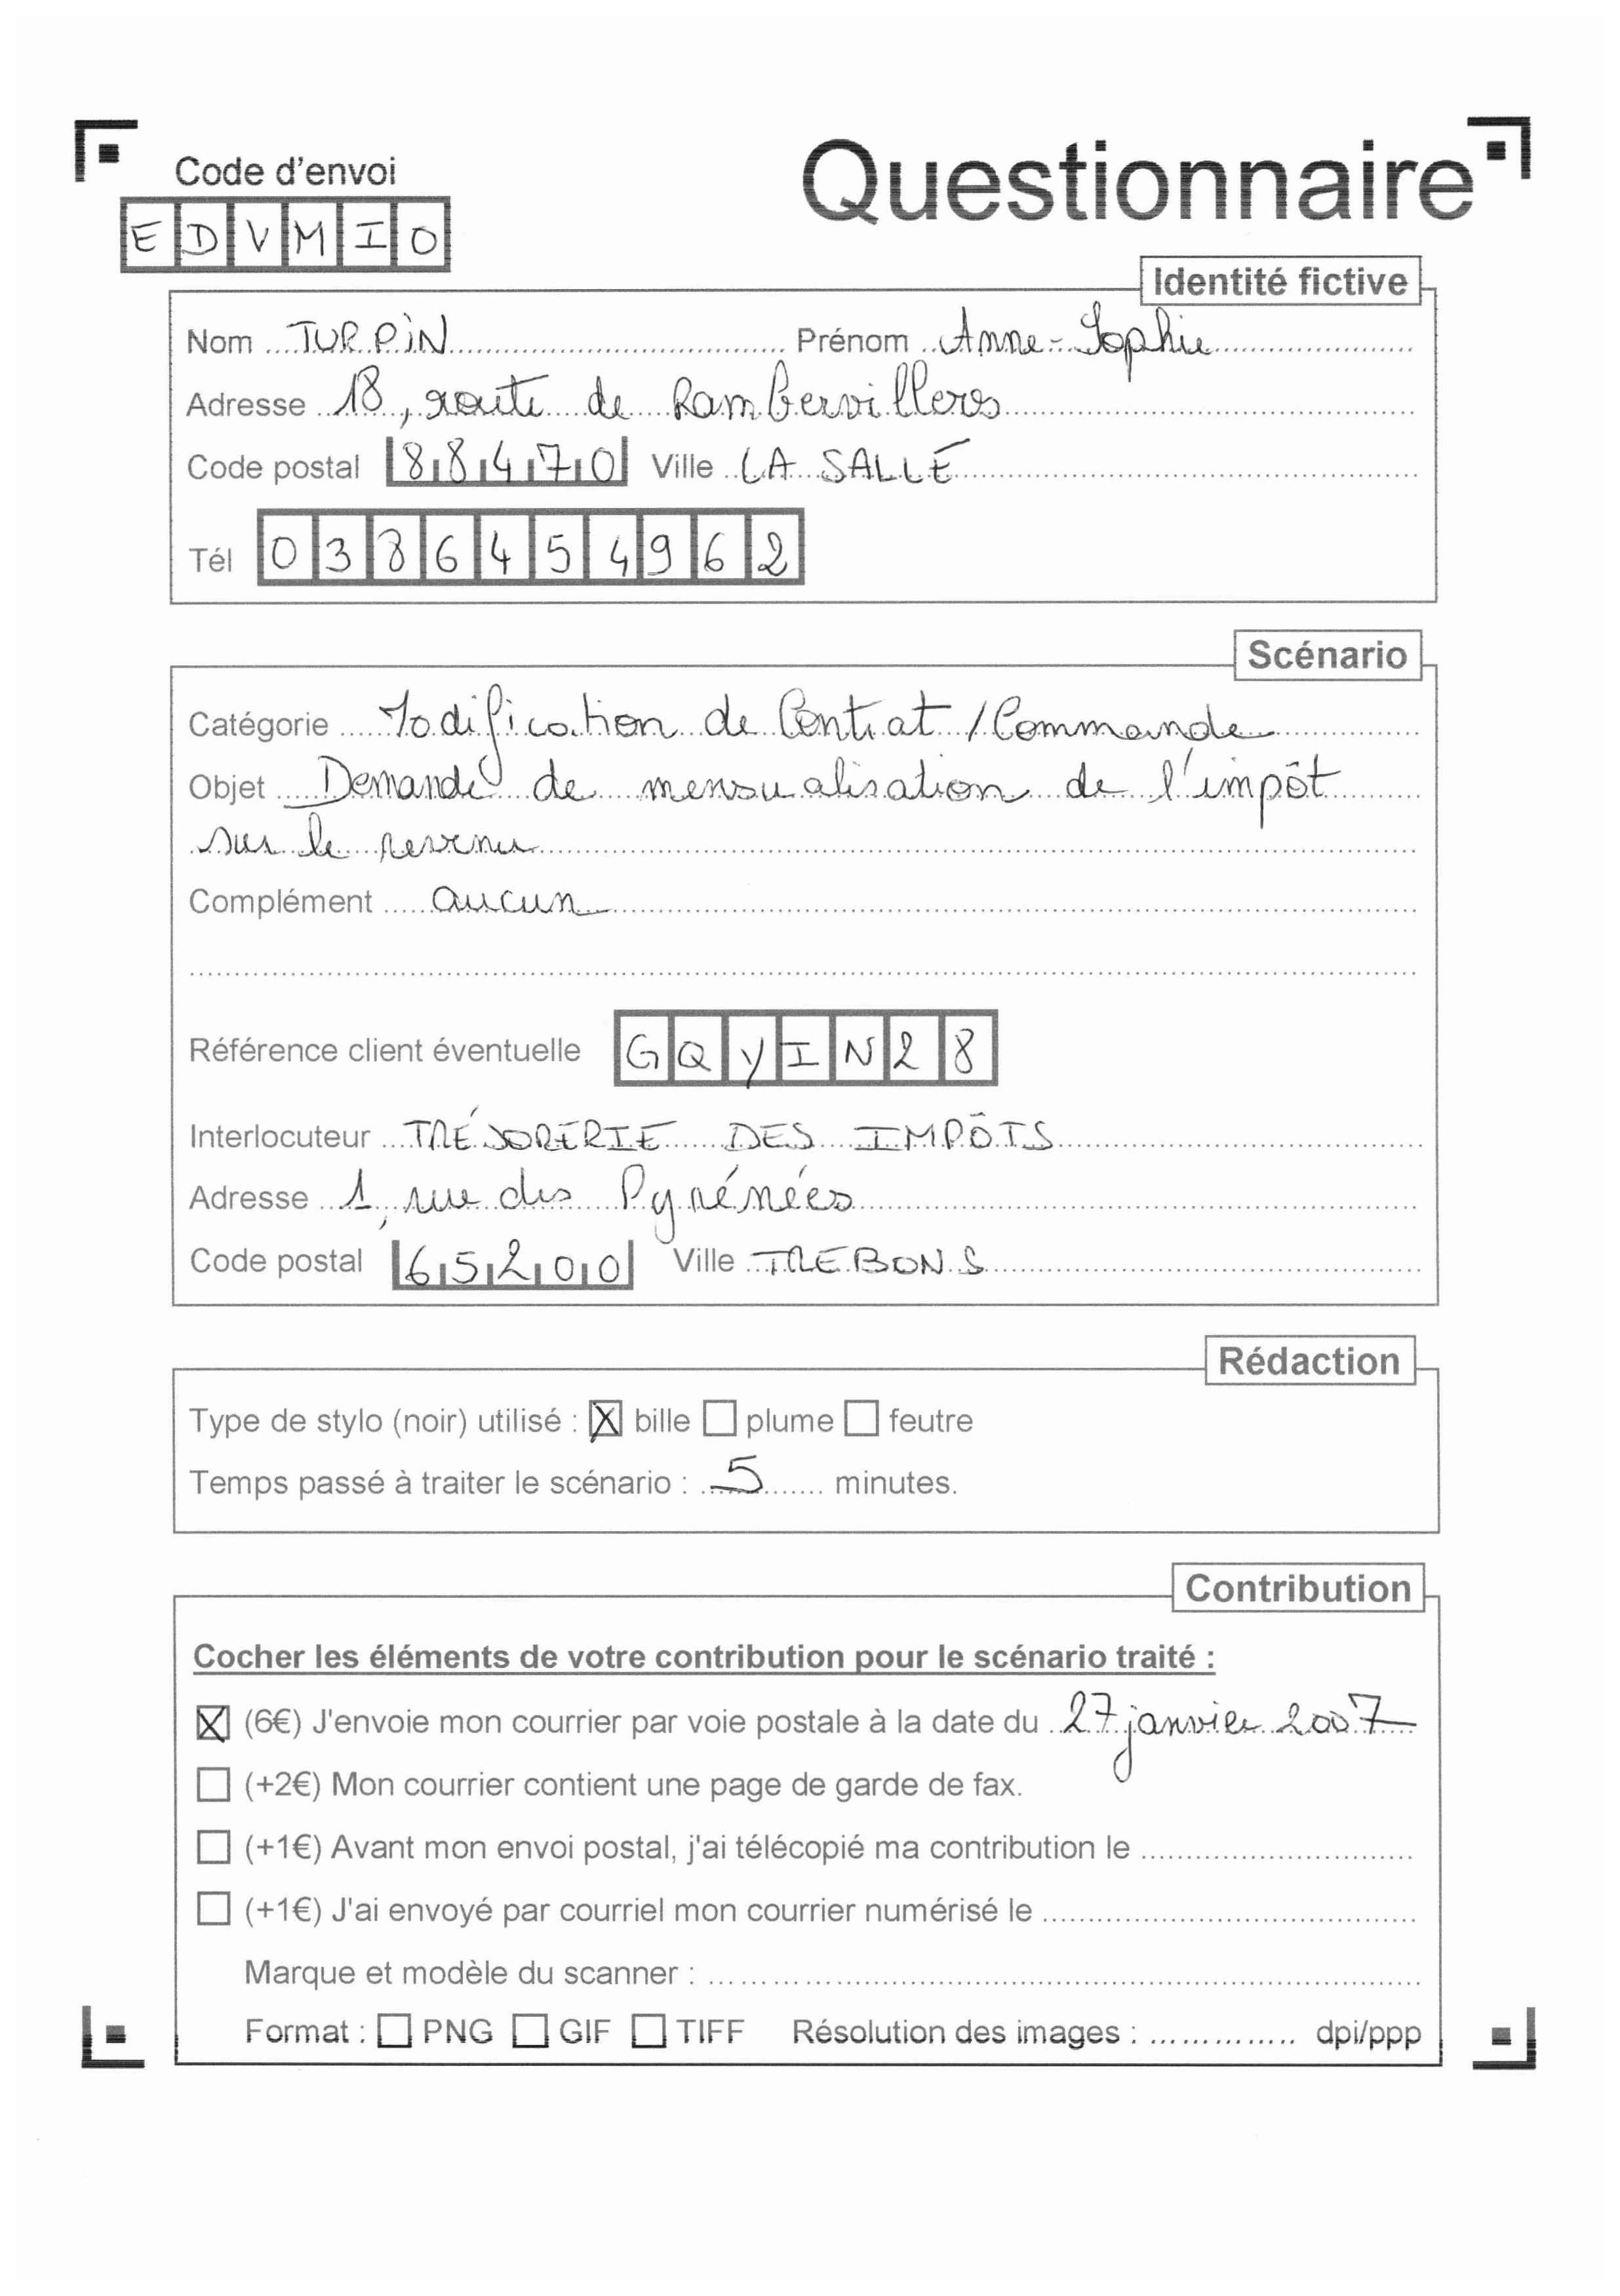 Code d'envoi
EDVMIO
Questionnaire
Identité fictive
Nom TURPIN Prénom Anne-Sophie
Adresse 18, route de Rambervillers
Code postal 88470 Ville LA SALLE
Tél 0386454962
Scénario
Catégorie Modification de Contrat / Commande
Objet Demande de mensualisation de l'impôt
sur le revenu
Complément aucun
Référence client éventuelle GQYIN28
Interlocuteur TRÉSORERIE DES IMPÔTS
Adresse 1, rue des Pyrénées
Code postal 65200 Ville TREBONS
Rédaction
Type de stylo (noir) utilisé : ☒ bille ☐ plume ☐ feutre
Temps passé à traiter le scénario : 5 minutes.
Contribution
Cocher les éléments de votre contribution pour le scénario traité :
☒ (6€) J'envoie mon courrier par voie postale à la date du 27 janvier 2007
☐ (+2€) Mon courrier contient une page de garde de fax.
☐ (+1€) Avant mon envoi postal, j'ai télécopié ma contribution le
☐ (+1€) J'ai envoyé par courriel mon courrier numérisé le
Marque et modèle du scanner :
Format : ☐ PNG ☐ GIF ☐ TIFF Résolution des images : dpi/ppp